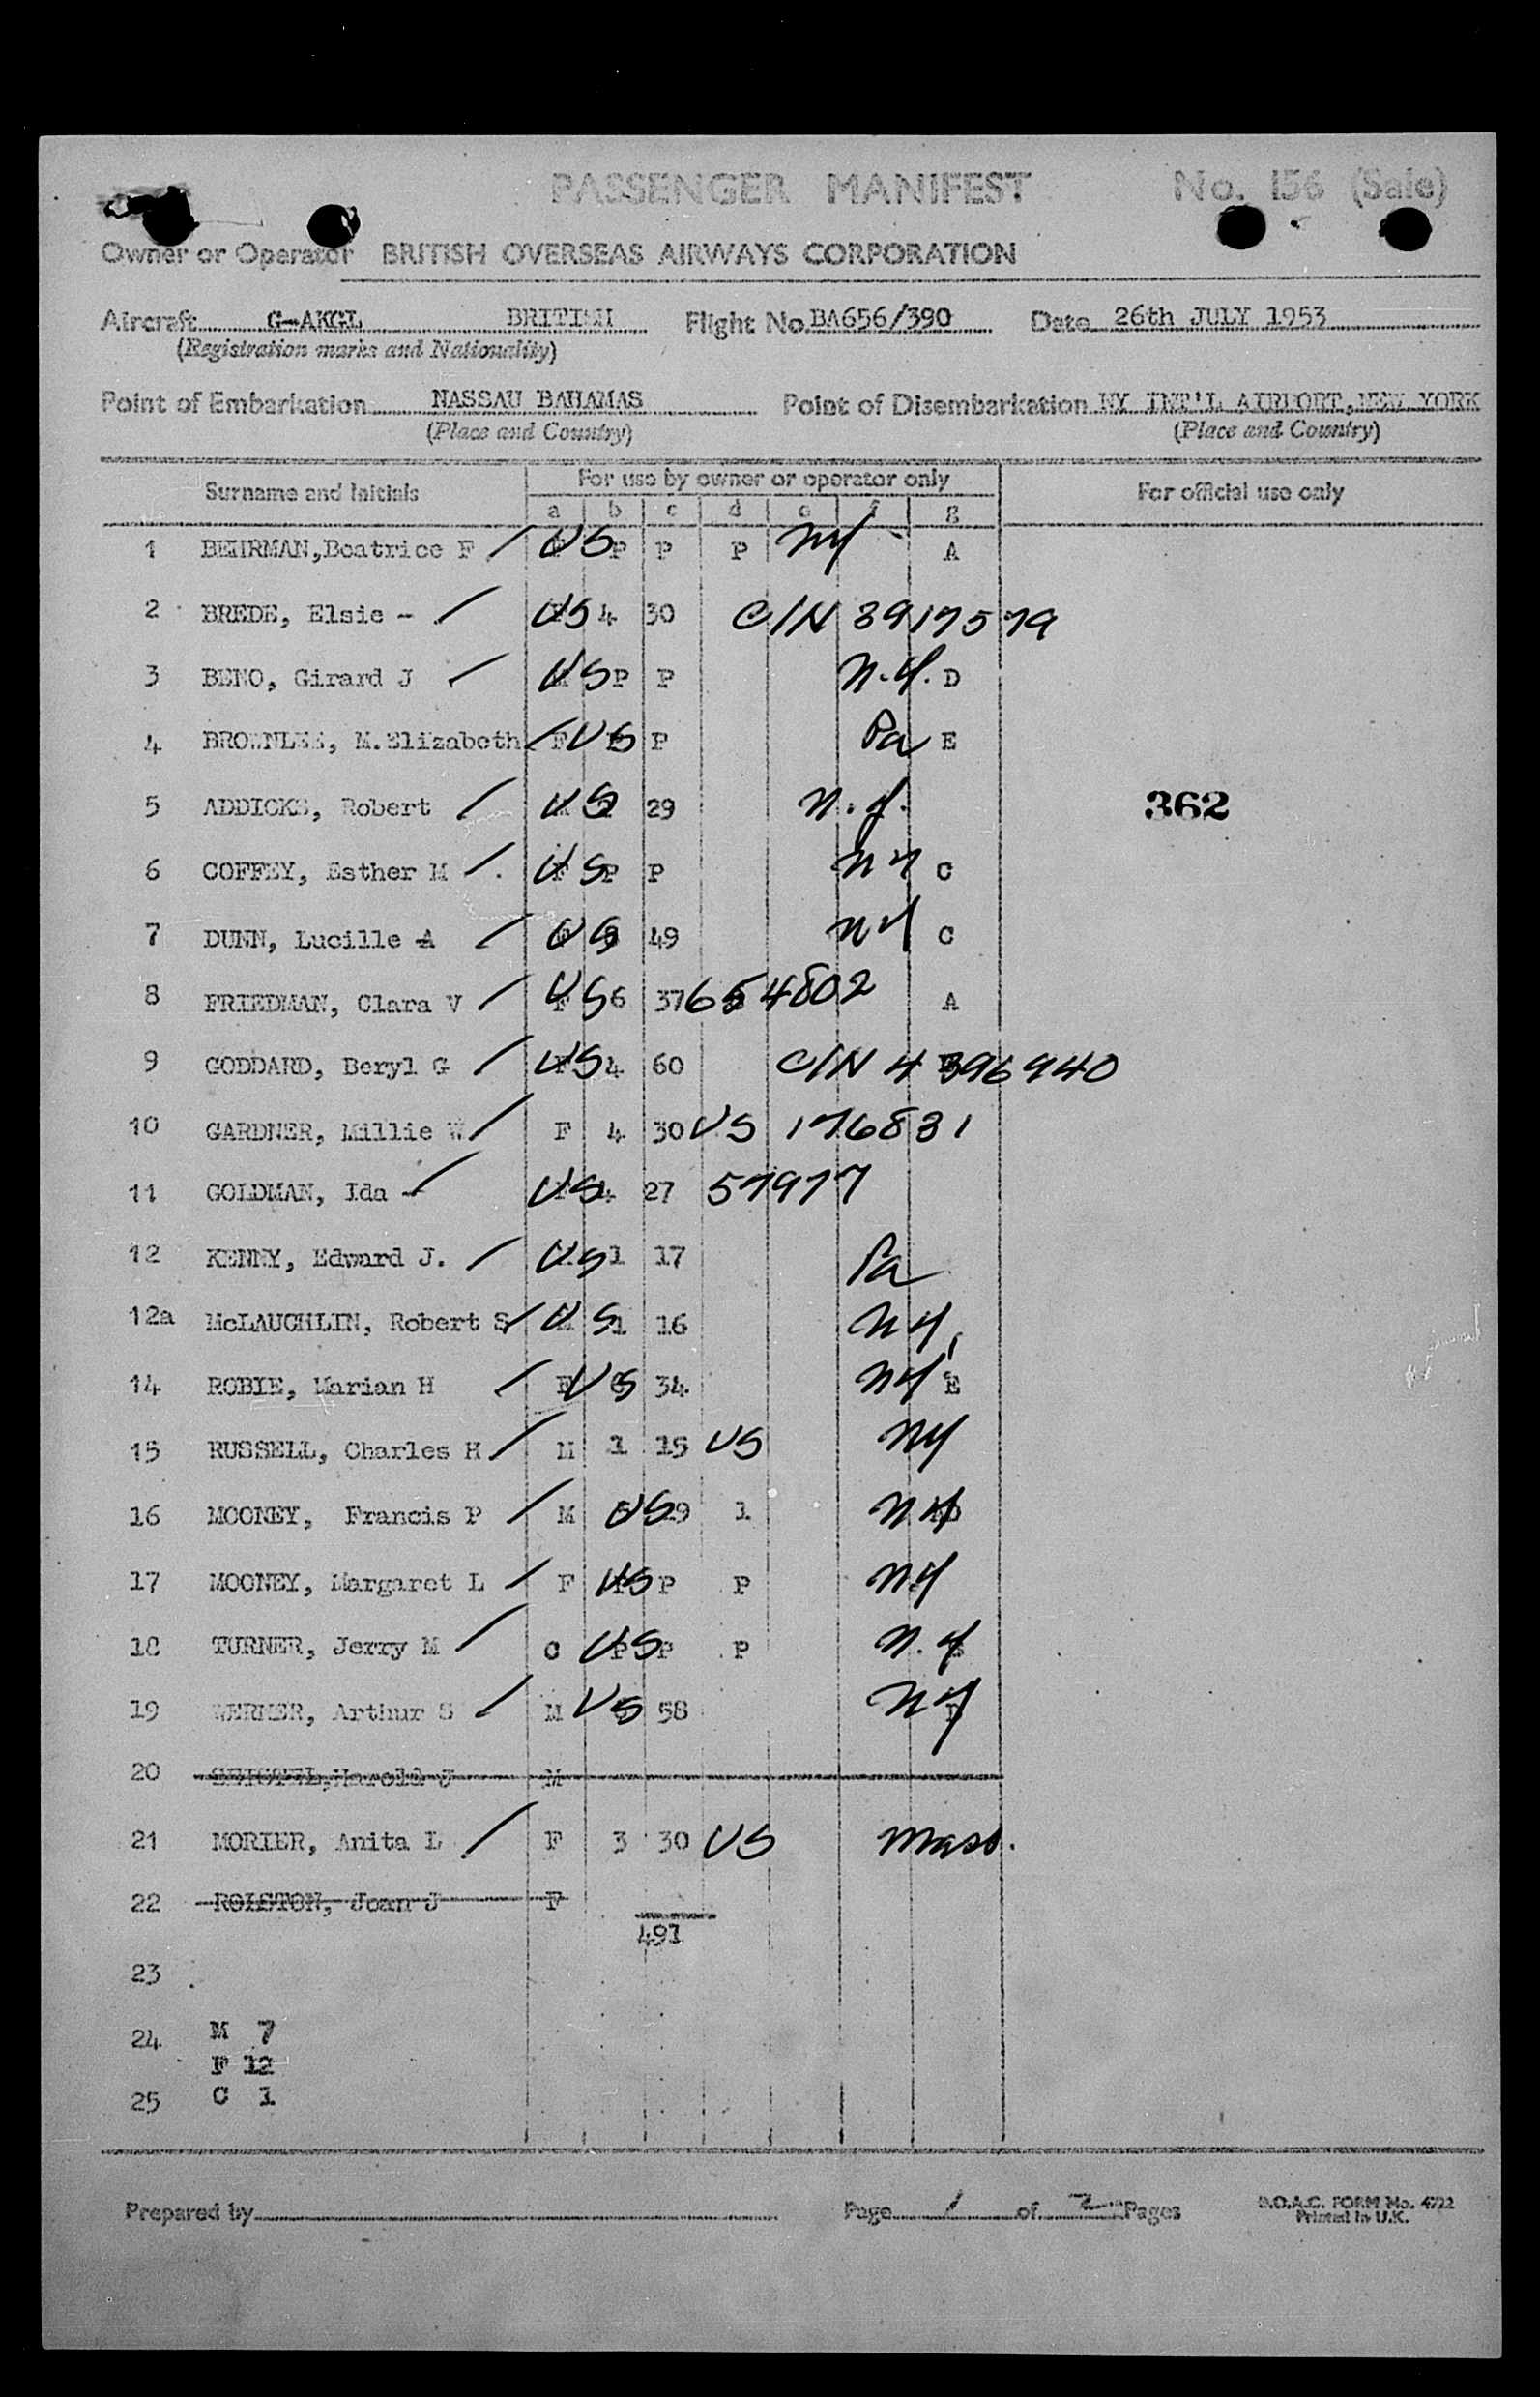 PASSENGER MANIFEST No. 156 (Sale)
Owner or Operator BRITISH OVERSEAS AIRWAYS CORPORATION
Aircraft G-AKGL BRITISH Flight No. BA656/390 Date 26th JULY 1953
(Registration marks and Nationality)
Point of Embarkation NASSAU BAHAMAS Point of Disembarkation NY INT'L AIRPORT, NEW YORK
(Place and Country) (Place and Country)
Surname and Initials For use by owner or operator only For official use only
a b c d e f g
1 BEHRMAN, Beatrice F / US P P P NY A
2 BREDE, Elsie - / US 4 30 C/N 3917579
3 BENO, Girard J / US P P N.Y. D
4 BROWNLEE, M. Elizabeth / F US P Pa E
5 ADDICKS, Robert / US 29 N.J. 362
6 COFFEY, Esther M / US P P NY C
7 DUNN, Lucille A / US 49 NY C
8 FRIEDMAN, Clara V / US 6 37 654802 A
9 GODDARD, Beryl G / US 4 60 C/N 4396940
10 GARDNER, Millie W / F 4 30 US 176831
11 GOLDMAN, Ida - / US 4 27 57977
12 KENNY, Edward J. / US 1 17 Pa
12a McLAUGHLIN, Robert S / US 1 16 NY
14 ROBIE, Marian H / F US 34 NY E
15 RUSSELL, Charles H / M 1 15 US NY
16 MOONEY, Francis P / M US 9 1 NY
17 MOONEY, Margaret L / F US P P NY
18 TURNER, Jerry M / C US P P N.Y
19 Arthur S / M US 58 NY
20 Harold J M
21 MORIER, Anita L / F 3 30 US Mass.
22 ROISTON, Joan J F
491
23
24 M 7
F 12
25 C 1
Prepared by Page 1 of 2 Pages B.O.A.C. FORM No. 4722
Printed in U.K.